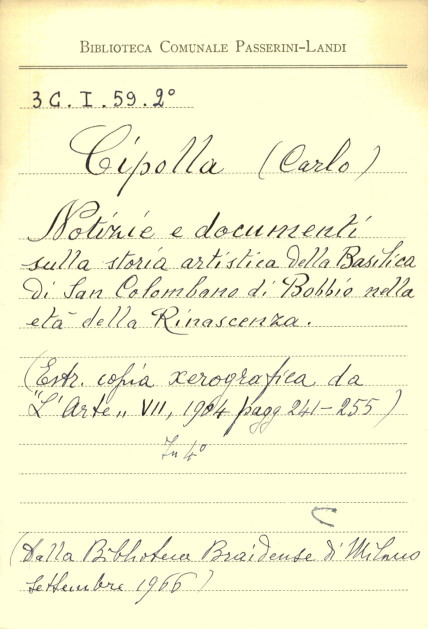 BIBLIOTECA COMUNALE PASSERINI-LANDI
3G. I. 59. 2°
Cipolla (Carlo)
Notizie e documenti
sulla storia artistica della Basilica
di San Colombano di Bobbio nella
età della Rinascenza.
(Estr. copia xerografica da
"L'Arte„ VII, 1904 pagg 241-255)
In 4°
(Dalla Biblioteca Braidense di Milano
settembre 1966)